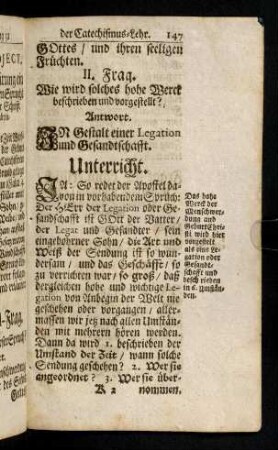 der Catechismus-Lehr. 147
GOttes / und ihren seeligen
Früchten.
II. Frag.
Wie wird solches hohe Werck
beschrieben und vorgestellt?
Antwort.
IN Gestalt einer Legation
und Gesandtschafft.
Unterricht.
JA: So redet der Apostel da-
von in vorhabendem Spruch:
Der HErr der Legation oder Ge-
sandschafft ist GOtt der Vatter /
der Legat und Gesandter / sein
eingebohrner Sohn / die Art und
Weiß der Sendung ist so wun-
dersam / und das Geschäfft / so
zu verrichten war / so groß / daß
dergleichen hohe und wichtige Le-
gation von Anbegin der Welt nie
geschehen oder vorgangen / aller-
massen wir jetz nach allen Umstän-
den mit mehrern hören werden.
Dann da wird 1. beschrieben der
Umstand der Zeit / wann solche
Sendung geschehen? 2. Wer sie
angeordnet? 3. Wer sie über-
K 2 nommen.
Das hohe
Werck der
Menschwer-
dung und
Geburt Chri-
sti wird hier
vorgestellt
als eine Le-
gation oder
Gesandt-
schafft und
besch rieben
in 6. Umstän-
den.